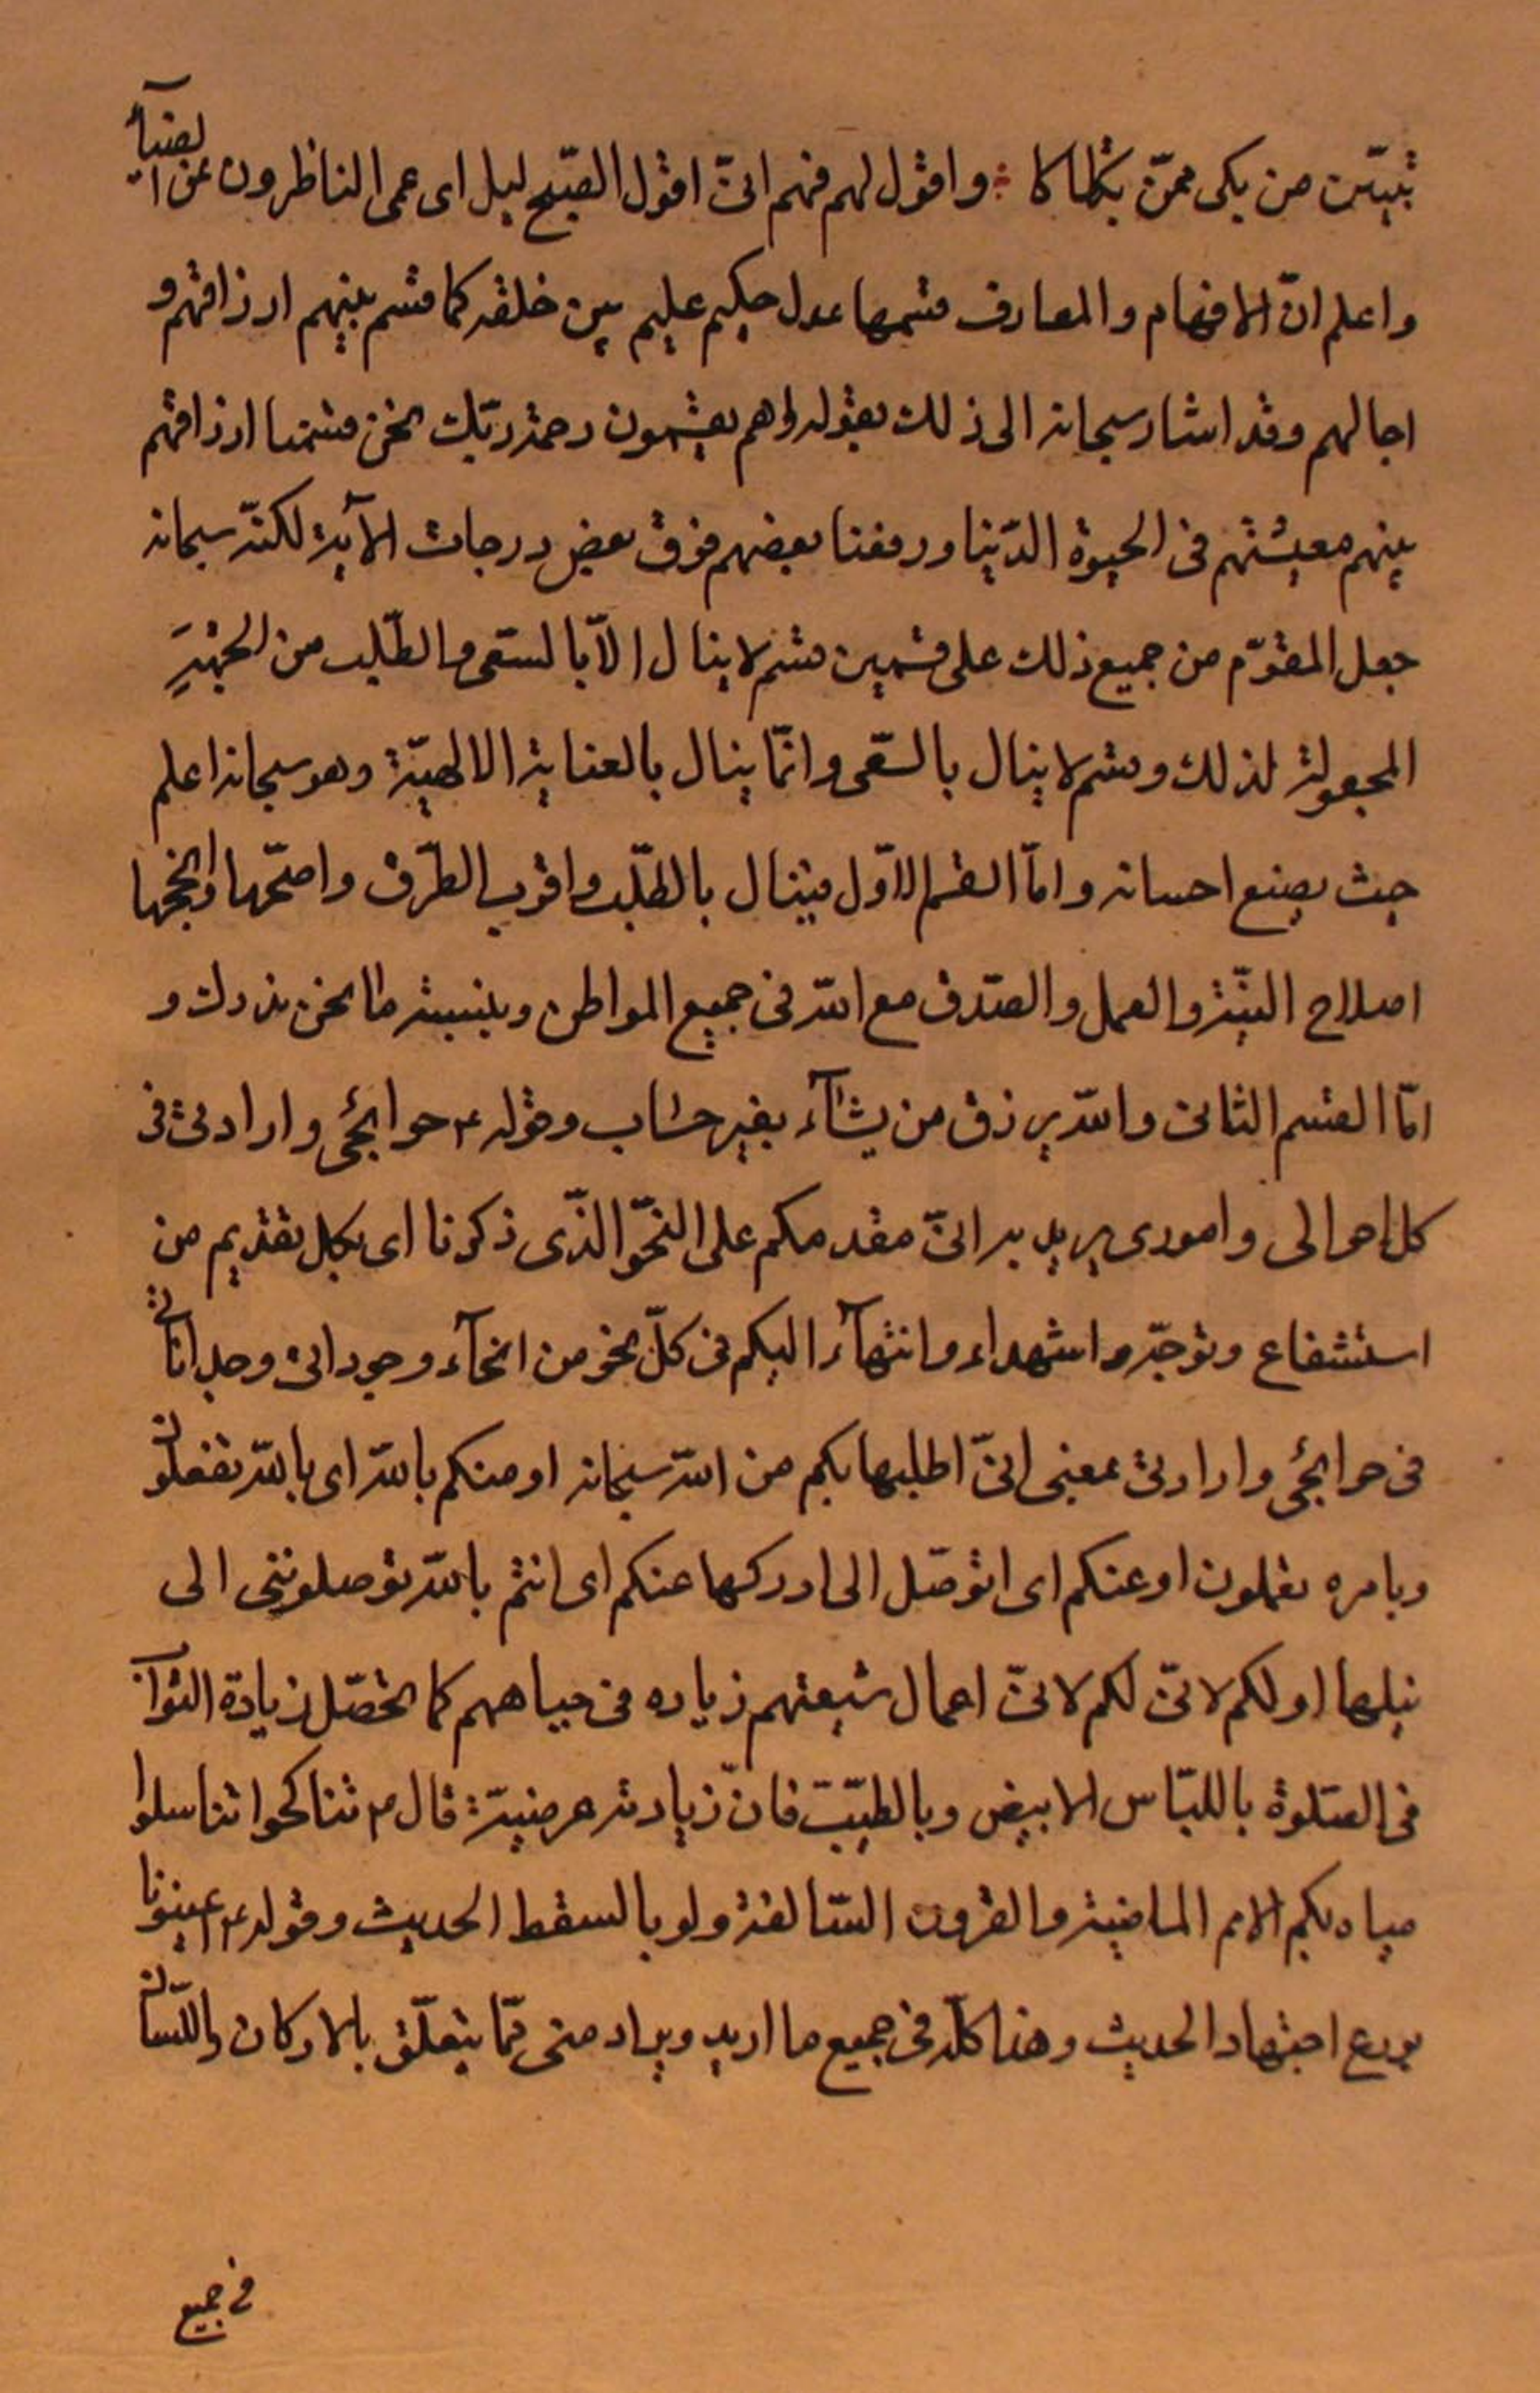 تبيّن من بكى ممّن تباكا ؞ واقول لهم فهم انّى اقول الصّبح ليل اى عمى الناظرون عن الضيآء
واعلم انّ الافهام والمعارف قسمها عدل حكيم عليم بين خلقه كما قسم بينهم ارزاقهم و
اجالهم وقد اشار سبحانه الى ذلك بقوله اهم يقسمون رحمة ربّك نحن قسمنا ارزاقهم
بينهم معيشتهم فى الحيوة الدّنيا ورفعنا بعضهم فوق بعض درجات الآية لكنّه سبحانه
جعل المقوّم من جميع ذلك على قسمين قسم لا ينال الّا بالسّعى والطّلب من الجهةِ
المجعولة لذلك وقسم لا ينال بالسّعى وانّما ينال بالعناية الالهيّة وهو سبحانه اعلم
حيث يصنع احسانه وامّا القسم الاوّل فينال بالطّلب واقرب الطّرق واصحّها وانجحها
اصلاح النيّة والعمل والصّدق مع الله فى جميع المواطن وبنسبة ما نحن بذلك و
امّا القسم الثانى والله يرزق من يشآء بغير حساب وقوله ع حوائجى وارادتى فى
كل احوالى وامورى يريد به انّى مقدمكم على النّحو الذّى ذكرنا اى بكل تقديم من
استشفاع وتوجّه واشهداء وانتهآء اليكم فى كلّ نحو من انحآء وجودانى وجداناتى
فى حوائجى وارادتى بمعنى انّى اطلبها بكم من الله سبحانه او منكم بالله اى بالله تفعلون
وبامره تعملون او عنكم اى اتوصّل الى ادركها عنكم اى انتم بالله توصلوننى الى
نيلها او لكم لانّى لكم لانّ اعمال شيعتهم زياده فى حياهم كما تحصّل زيادة الثواب
فى الصّلوة باللبّاس الابيض وبالطيّب فانّ زيادته عرضيّة قال ص تناكحوا تناسلوا
مباه بكم الامم الماضية والقرون السّالفة ولو بالسقط الحديث وقوله ع اعينونا
بورع اجتهاد الحديث وهذا كلّه فى جميع ما اريد ويراد منى ممّا يتعلّق بالاركان واللّسان
فى جميع